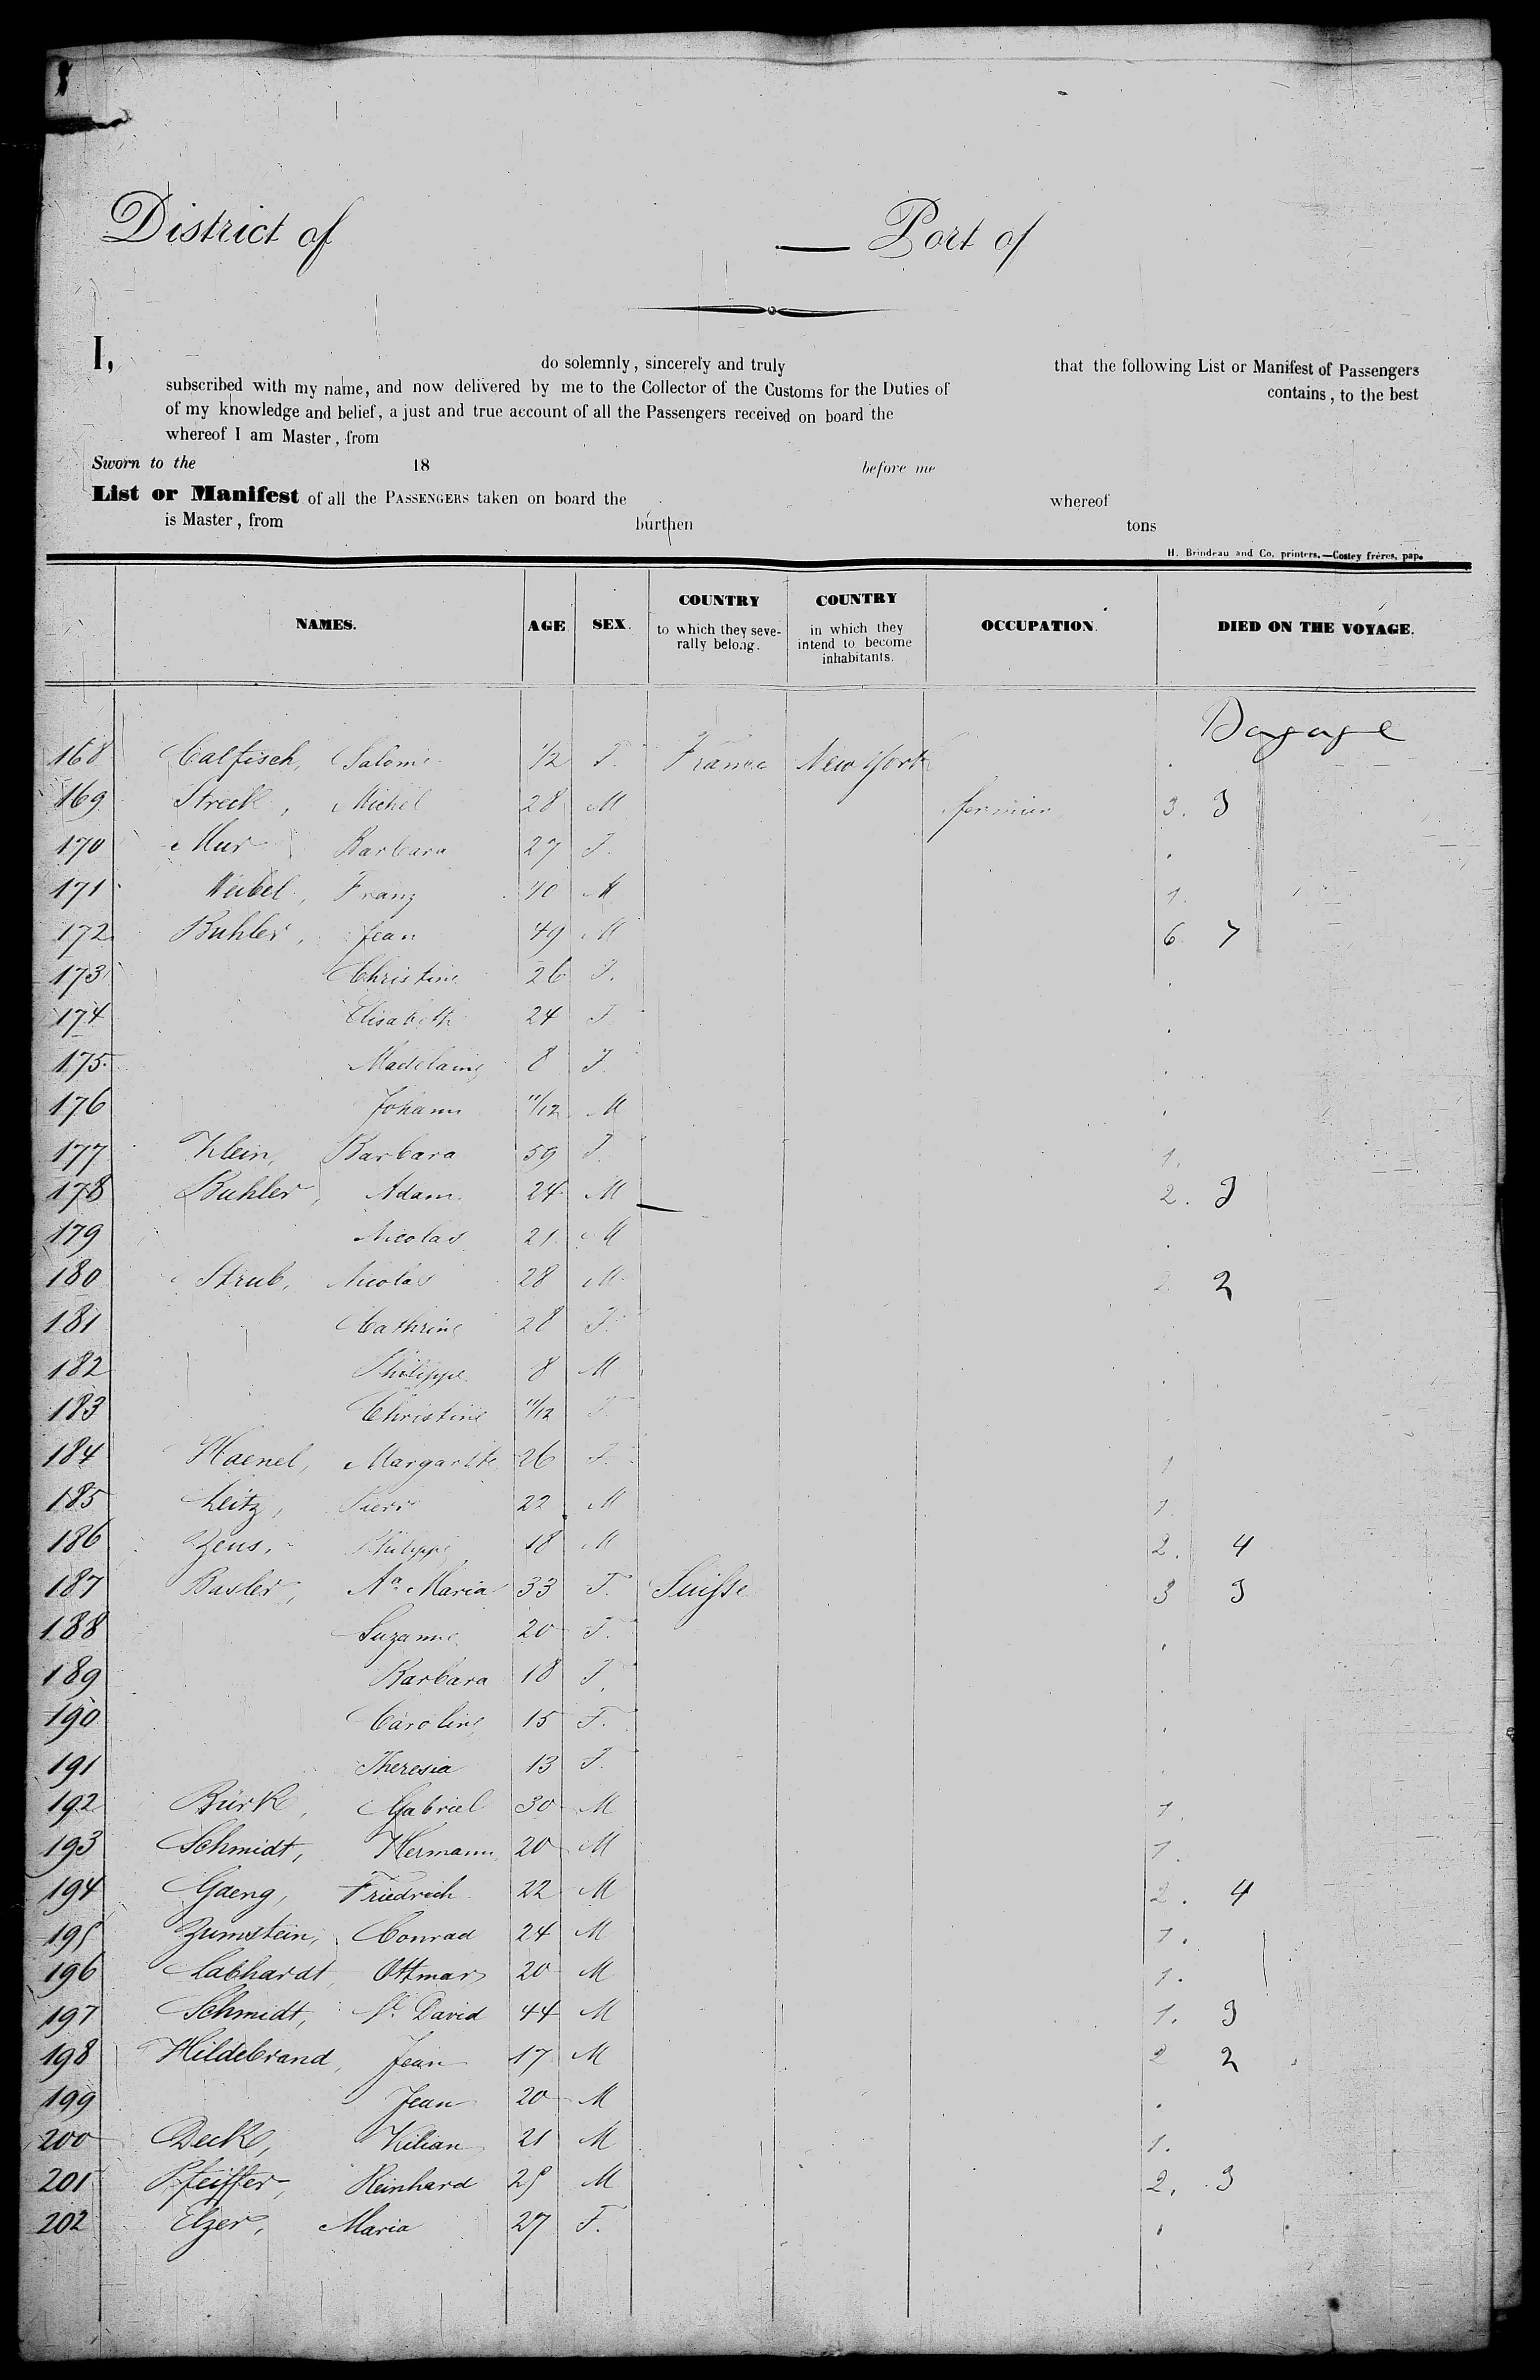 District of — Port of
I, do solemnly, sincerely and truly that the following List or Manifest of Passengers
subscribed with my name, and now delivered by me to the Collector of the Customs for the Duties of contains, to the best
of my knowledge and belief, a just and true account of all the Passengers received on board the
whereof I am Master, from
Sworn to the 18 before me
List or Manifest of all the PASSENGERS taken on board the whereof
is Master, from burthen tons
H. Brindeau and Co. printers.—Costey frères, pap.
NAMES. AGE SEX. COUNTRY to which they severally belong. COUNTRY in which they intend to become inhabitants. OCCUPATION. DIED ON THE VOYAGE.
Bagage
168 Calfisch, Salome 1/2 F. France New York
169 Streck, Michel 28 M fermier 3. 3
170 Mur Barbara 27 F.
171 Weibel, Franz 40 M 1.
172 Buhler, Jean 49 M 6 7
173 Christine 26 F.
174 Elisabeth 24 F
175 Madelaine 8 F.
176 Johann 11/12 M
177 Klein, Barbara 59 F. 1.
178 Buhler, Adam 24 M 2. 3
179 Nicolas 21 M
180 Strub, Nicolas 28 M 2 2
181 Cathrine 28 F.
182 Philippe 8 M
183 Christine 11/12 F.
184 Haenel, Margarithe 26 F. 1
185 Leitz, Pierre 22 M 1.
186 Zeus, Philippe 18 M 2. 4
187 Basler, Aa Maria 33 F. Suisse 3 3
188 Suzanne 20 F.
189 Barbara 18 F.
190 Caroline 15 F.
191 Theresia 13 F.
192 Bürk, Gabriel 30 M 1.
193 Schmidt, Hermann 20 M 1.
194 Gaeng, Friedrich 22 M 2. 4
195 Zumstein, Conrad 24 M 1.
196 Labhardt, Ottmar 20 M 1.
197 Schmidt, David 44 M 1. 3
198 Hildebrand, Jean 17 M 2 2
199 Jean 20 M
200 Deck, Kilian 21 M 1.
201 Pfeiffer, Reinhard 25 M 2. 3
202 Elzer, Maria 27 F.